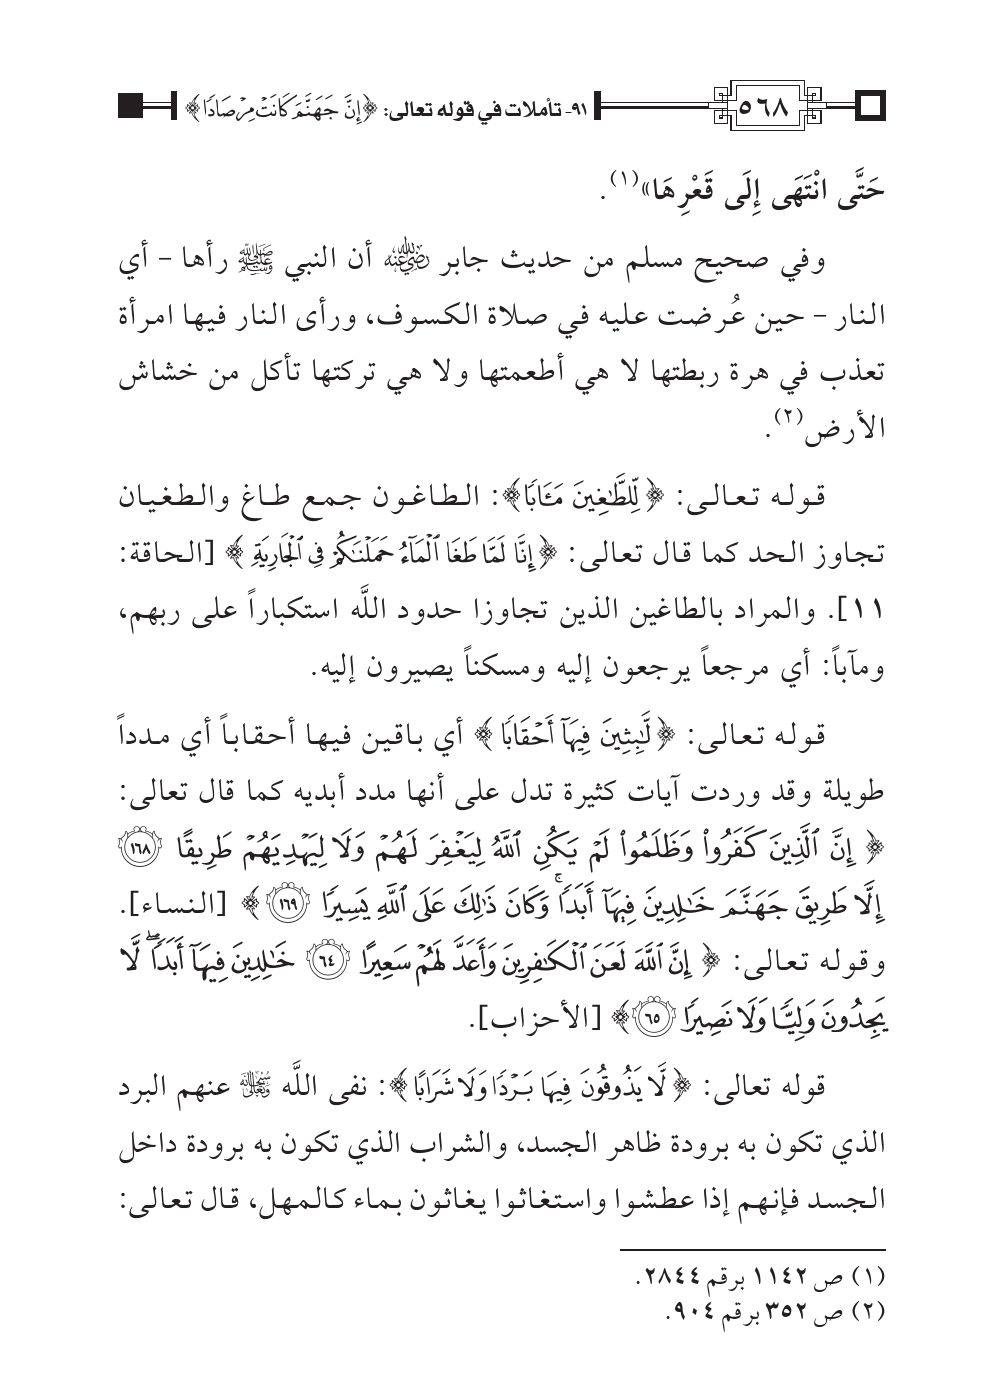 ٥٦٨
٩١- تأملات في قوله تعالى: ﴿إِنَّ جَهَنَّمَ كَانَتْ مِرْصَادًا﴾
حَتَّى انْتَهَى إِلَى قَعْرِهَا»(١).
وفي صحيح مسلم من حديث جابر رضي الله عنه أن النبي ﷺ رأها - أي
النار - حين عُرضت عليه في صلاة الكسوف، ورأى النار فيها امرأة
تعذب في هرة ربطتها لا هي أطعمتها ولا هي تركتها تأكل من خشاش
الأرض(٢).
قوله تعالى: ﴿لِّلطَّٰغِينَ مَـَٔابٗا﴾: الطاغون جمع طاغ والطغيان
تجاوز الحد كما قال تعالى: ﴿إِنَّا لَمَّا طَغَا ٱلۡمَآءُ حَمَلۡنَٰكُمۡ فِي ٱلۡجَارِيَةِ﴾ [الحاقة:
١١]. والمراد بالطاغين الذين تجاوزا حدود اللَّه استكباراً على ربهم،
ومآباً: أي مرجعاً يرجعون إليه ومسكناً يصيرون إليه.
قوله تعالى: ﴿لَّٰبِثِينَ فِيهَآ أَحۡقَابٗا﴾ أي باقين فيها أحقاباً أي مدداً
طويلة وقد وردت آيات كثيرة تدل على أنها مدد أبديه كما قال تعالى:
﴿إِنَّ ٱلَّذِينَ كَفَرُواْ وَظَلَمُواْ لَمۡ يَكُنِ ٱللَّهُ لِيَغۡفِرَ لَهُمۡ وَلَا لِيَهۡدِيَهُمۡ طَرِيقًا ١٦٨
إِلَّا طَرِيقَ جَهَنَّمَ خَٰلِدِينَ فِيهَآ أَبَدٗاۚ وَكَانَ ذَٰلِكَ عَلَى ٱللَّهِ يَسِيرٗا ١٦٩﴾ [النساء].
وقوله تعالى: ﴿إِنَّ ٱللَّهَ لَعَنَ ٱلۡكَٰفِرِينَ وَأَعَدَّ لَهُمۡ سَعِيرًا ٦٤ خَٰلِدِينَ فِيهَآ أَبَدٗاۖ لَّا
يَجِدُونَ وَلِيّٗا وَلَا نَصِيرٗا ٦٥﴾ [الأحزاب].
قوله تعالى: ﴿لَّا يَذُوقُونَ فِيهَا بَرۡدٗا وَلَا شَرَابًا﴾: نفى اللَّه سبحانه وتعالى عنهم البرد
الذي تكون به برودة ظاهر الجسد، والشراب الذي تكون به برودة داخل
الجسد فإنهم إذا عطشوا واستغاثوا يغاثون بماء كالمهل، قال تعالى:
(١) ص ١١٤٢ برقم ٢٨٤٤.
(٢) ص ٣٥٢ برقم ٩٠٤.